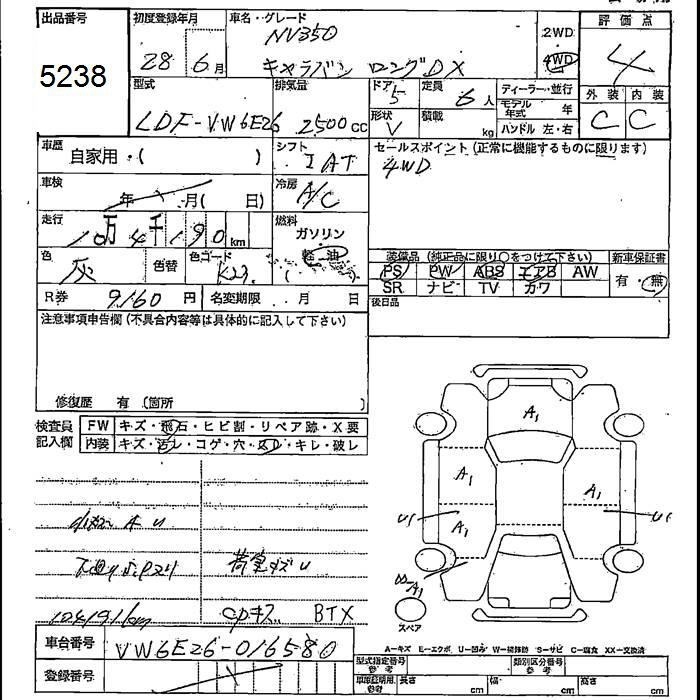 出品番号
5238
初度登録年月
28 6月
車名・グレード
NV350
キャラバン ロングDX
2WD
4WD
評価点
4
外装 内装
C C
型式
LDF-VW6E26
排気量
2500cc
ドア
5
定員
6人
形状
V
積載
kg
ディーラー・並行
モデル年式 年
ハンドル 左・右
車歴
自家用・( )
シフト
IAT
セールスポイント(正常に機能するものに限ります)
4WD
車検
年 月( 日)
冷房
A/C
走行
10万4千190km
燃料
ガソリン
軽油
色
灰
色替
色コード
K23
装備品(純正品に限り○をつけて下さい)
PS PW ABS エアB AW
SR ナビ TV カワ
新車保証書
有・無
R券 9160円
名変期限 月 日
後日品
注意事項申告欄(不具合内容等は具体的に記入して下さい)
修復歴 有 (箇所 )
検査員記入欄
FW キズ・飛石・ヒビ割・リペア跡・X要
内装 キズ・汚レ・コゲ・穴・スレ・キレ・破レ
下廻り
荷室キズU
104191km
BTX
A1
A1
A1
A1
U1
U1
A1
スペア
A-キズ E-エクボ U-凹み W-補修跡 S-サビ C-腐食 XX-交換済
車台番号
VW6E26-016580
登録番号
型式指定番号 参考
類別区分番号 参考
車庫証明用 参考
長さ cm
幅 cm
高さ cm